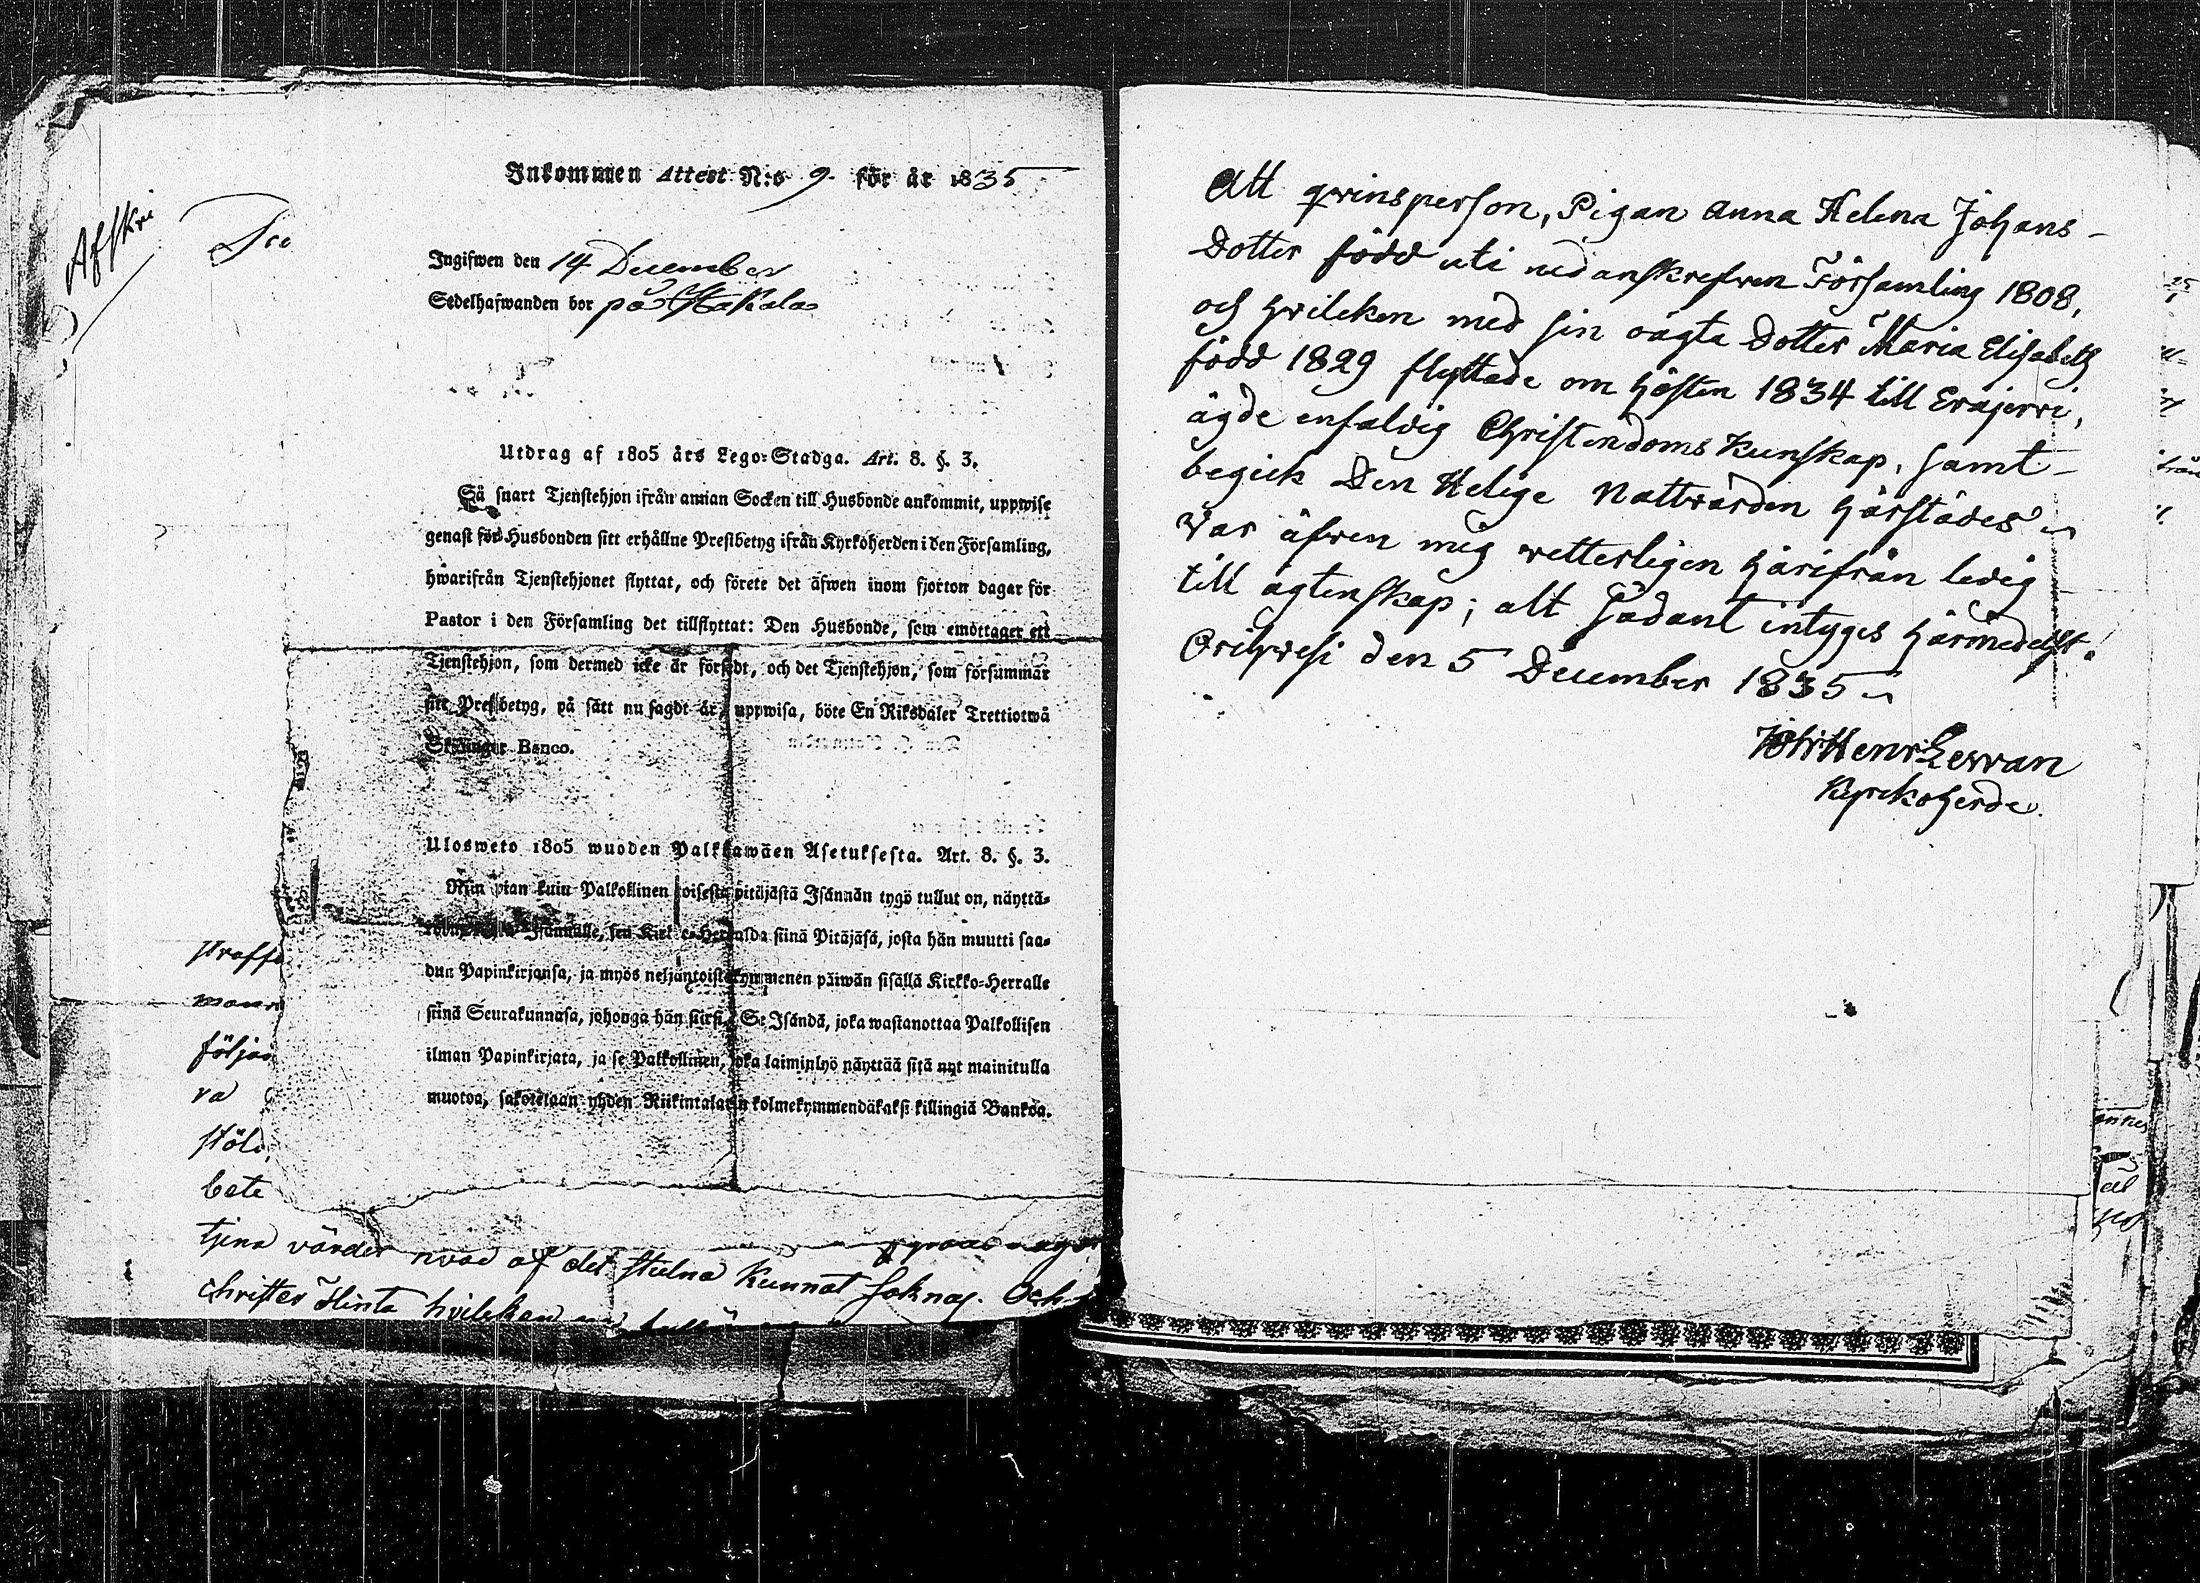 Afskri
Inkommen Attest N:o 9. för år 1835
Ingifwen den 14 December
Sedelhafwanden bor på Hakala
Utdrag af 1805 års Lego-Stadga. Art. 8. §. 3.
Så snart Tjenstehjon ifrån annan Socken till Husbonde ankommit, uppwise
genast för Husbonden sitt erhållne Prestbetyg ifrån Kyrkoherden i den Församling,
hwarifrån Tjenstehjonet flyttat, och förete det äfwen inom fjorton dagar för
Pastor i den Församling det tillflyttat: Den Husbonde, som emottager ett
Tjenstehjon, som dermed icke är försedt, och det Tjenstehjon, som försummar
sitt Prestbetyg, på sätt nu sagdt är, uppwisa, böte En Riksdaler Trettiotwå
Skillingar Banco.
Ulosweto 1805 wuoden Palkkawäen Asetuksesta. Art. 8. §. 3.
Niin pian kuin Palkollinen toisesta pitäjästä Isännän tygö tullut on, näyttä-
Isännälle, sen Kirkko-Herralda siinä Pitäjäsä, josta hän muutti saa-
dun Papinkirjansa, ja myös neljäntoistakymmenen päiwän sisällä Kirkko-Herralle
siinä Seurakunnasa, johonga hän siirsi. Se Isändä, joka wastanottaa Palkollisen
ilman Papinkirjata, ja se Palkollinen, joka laiminlyö näyttää sitä nyt mainitulla
muotoa, sakotetaan yhden Riikintalarin kolmekymmendäkaksi killingiä Bankoa.
straffa
mann
följan
va
stöld
bete
tjena värder hvad af det stulna kunnat saknas. Och
Christer Hinta hvilcken
Att qwinsperson, Pigan Anna Helena Johans-
Dotter född uti nedanskrefwen Församling 1808,
och hwilcken med sin oägta Dotter Maria Elisabeth
född 1829 flyttade om Hösten 1834 till Eräjerwi,
ägde enfaldig Christendoms Kunskap, samt
begick Den Helige Nattwarden härstädes
Var äfwen mig wetterligen härifrån ledig
till ägtenskap; alt sådant intyges härmedelst.
Orihwesi den 5 December 1835
Joh: Henr: Lewan
Kyrckoherde.